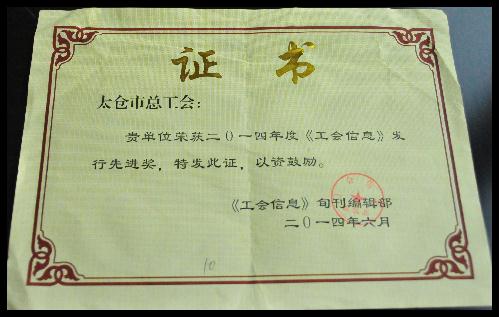 证 书
太仓市总工会：
贵单位荣获二〇一四年度《工会信息》发
行先进奖，特发此证，以资鼓励。
《工会信息》旬刊编辑部
二〇一四年六月
10